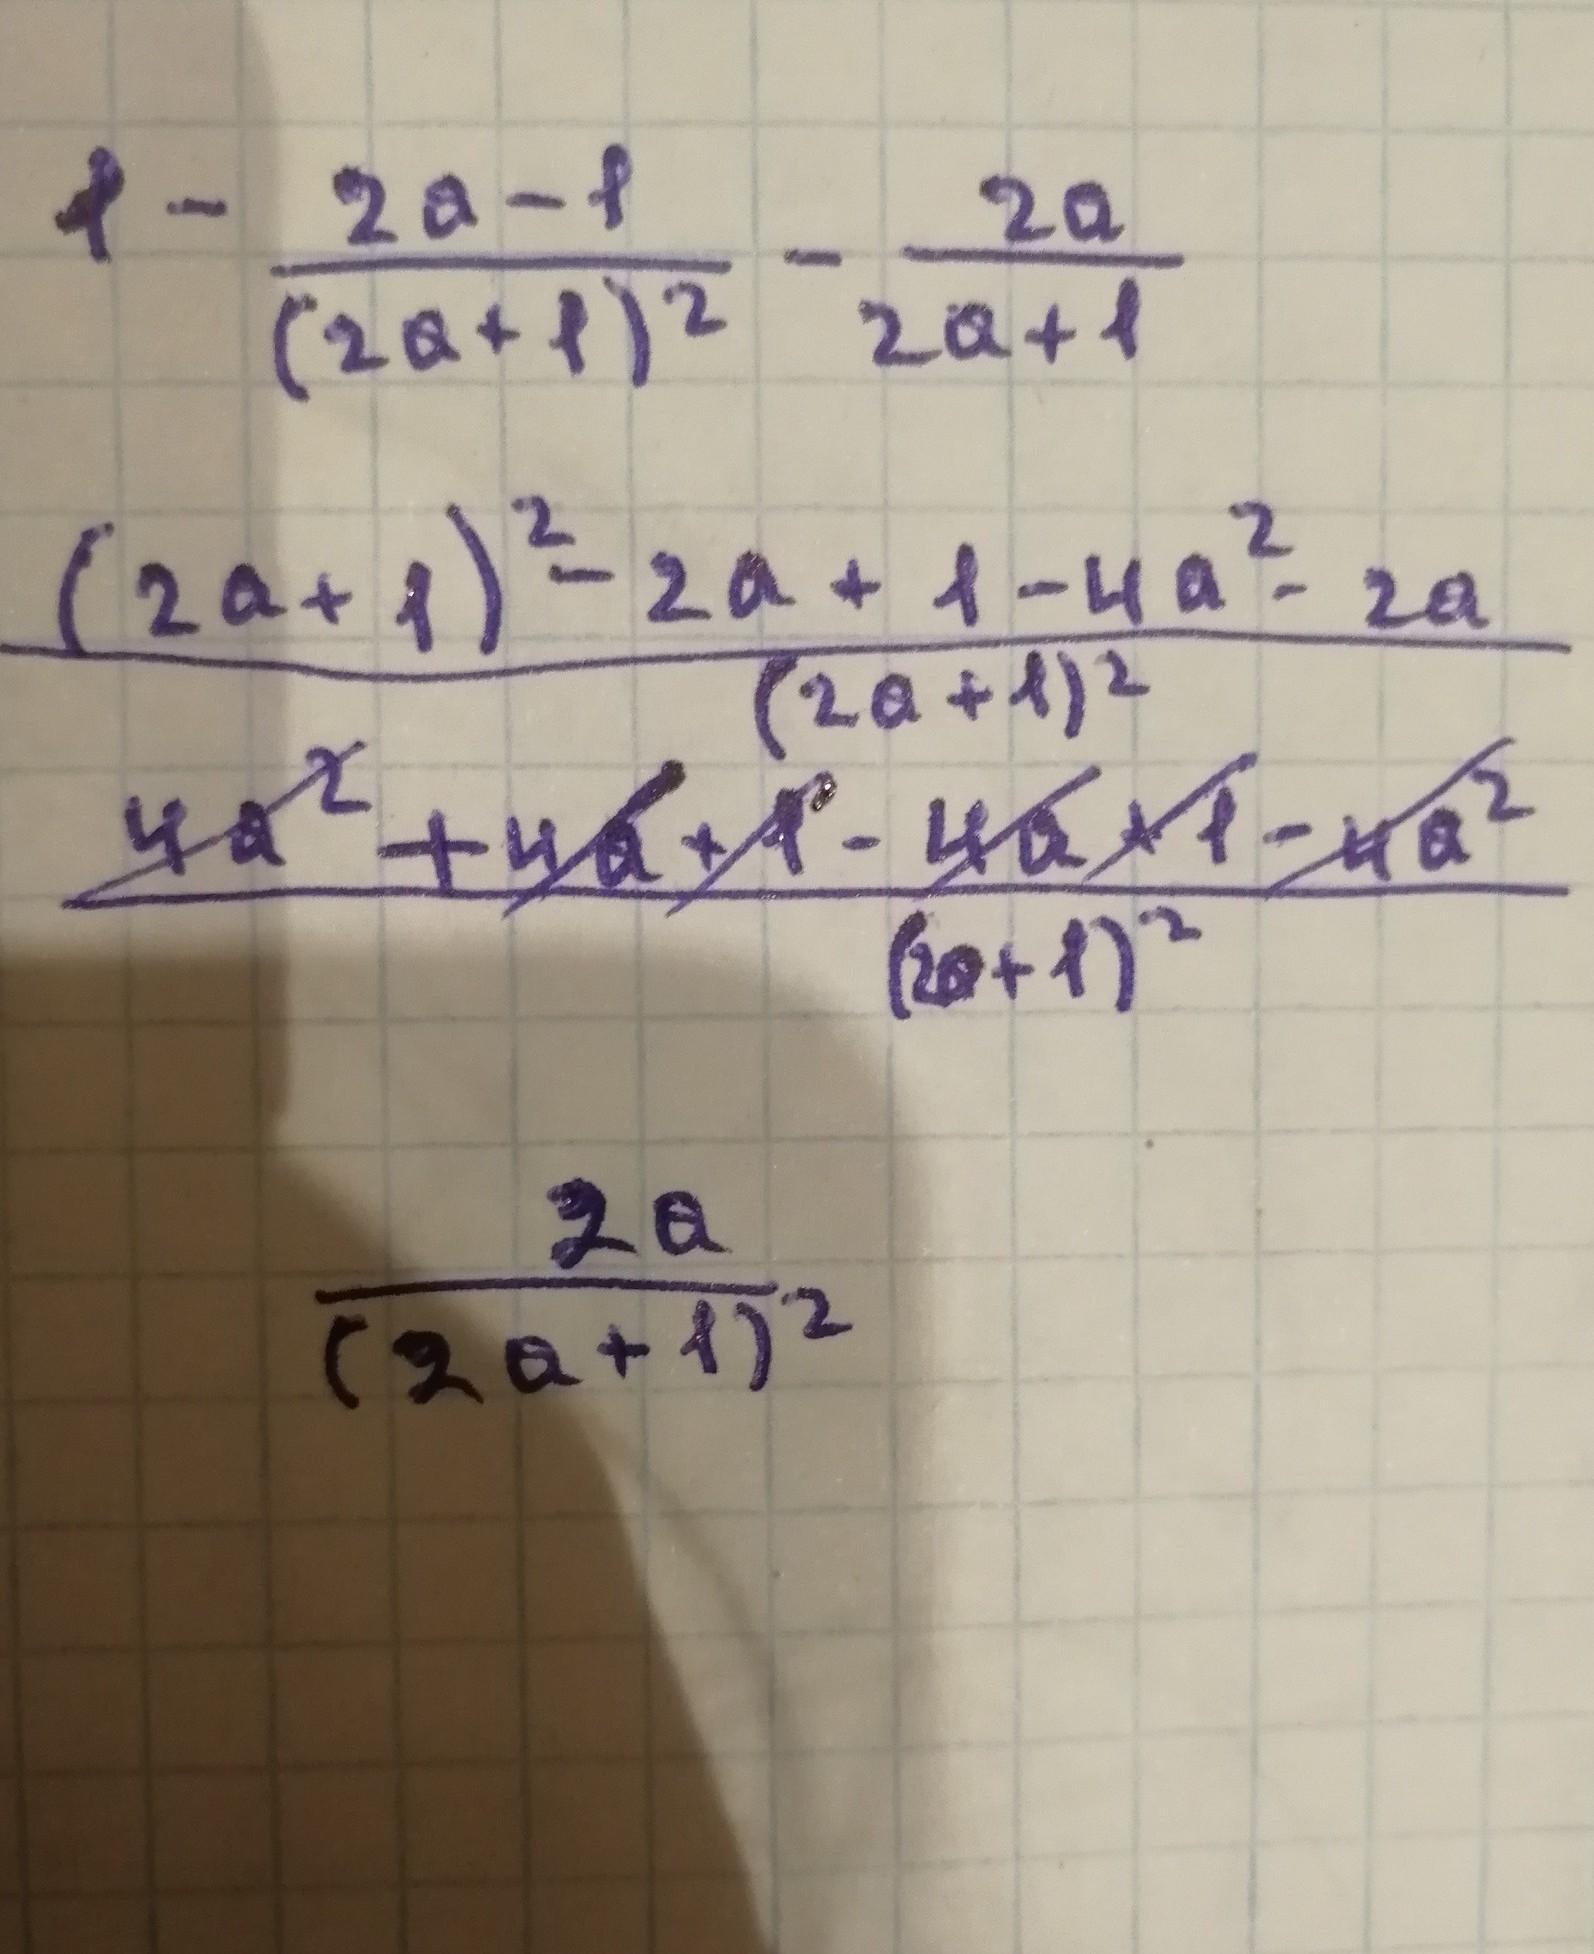 1 - (2a - 1)/(2a + 1)² - 2a/(2a + 1)
((2a + 1)² - 2a + 1 - 4a² - 2a)/(2a + 1)²
(4a² + 4a + 1 - 4a + 1 - 4a²)/(2a + 1)²
2a/(2a + 1)²